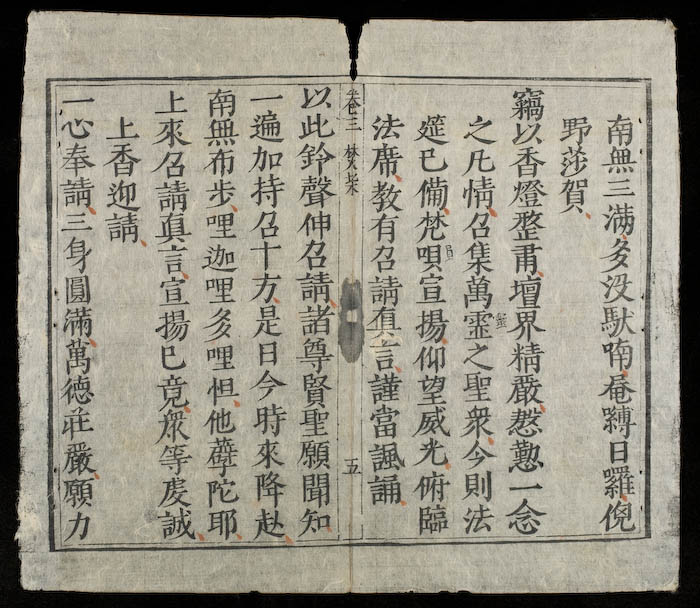 南無三滿多没䭾喃唵嚩日囉倪
野莎賀
竊以香燈整肅壇界精嚴慇懃一念
之凡情召集萬靈之聖衆今則法
筵已備梵唄宣揚仰望威光俯臨
法席教有召請真言謹當諷誦
卷三
五
以此鈴聲伸召請諸尊賢聖願聞知
一遍加持召十方是日今時來降赴
南無布步哩迦哩多哩怛他孽陀耶
上來召請真言宣揚已竟衆等虔誠
上香迎請
一心奉請三身圓滿萬德莊嚴願力